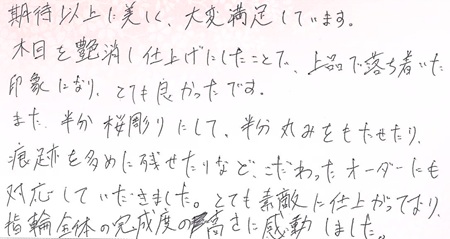 期待以上に美しく、大変満足しています。
木目を艶消し仕上げにしたことで、上品で落ち着いた
印象になり、とても良かったです。
また、半分桜彫りにして、半分丸みをもたせたり、
痕跡を多めに残せたりなど、こだわったオーダーにも
対応していただきました。とても素敵に仕上がっており、
指輪全体の完成度の高さに感動しました。